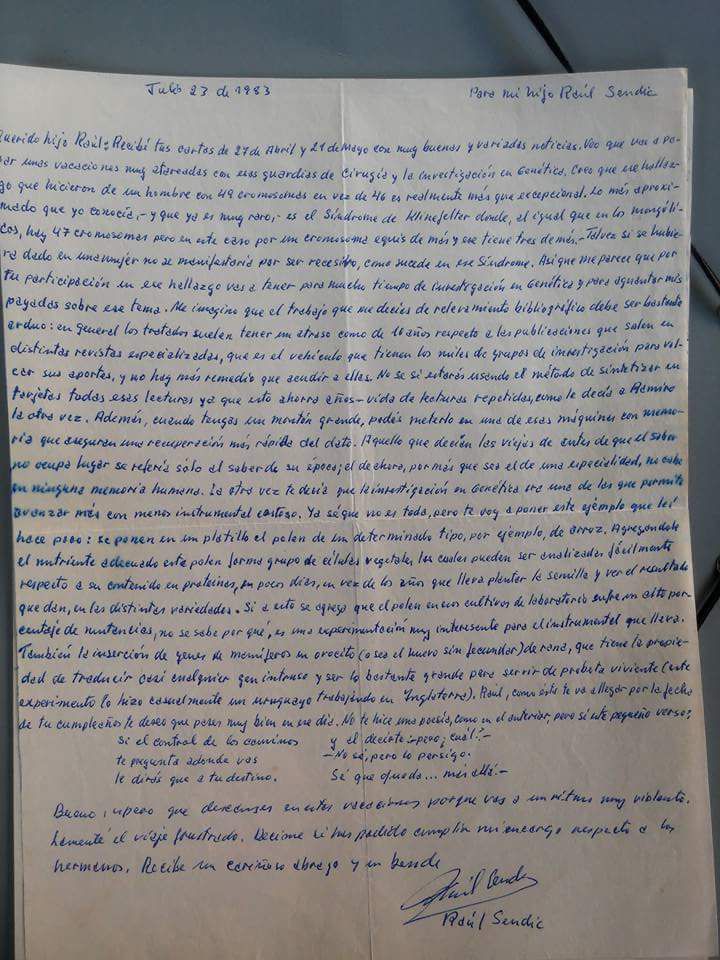 Julio 23 de 1983 Para mi hijo Raúl Sendic
Querido hijo Raúl: Recibí tus cartas de 27 de Abril y 21 de Mayo con muy buenas y variadas noticias. Veo que vas a pa-
sar unas vacaciones muy atareadas con esas guardias de Cirugía y la investigación en Genética. Creo que ese hallaz-
go que hicieron de un hombre con 49 cromosomas en vez de 46 es realmente más que excepcional. Lo más aproxi-
mado que yo conocía,- y que ya es muy raro,- es el Síndrome de Klinefelter donde, al igual que en los mongóli-
cos, hay 47 cromosomas pero en este caso por un cromosoma equis de más y ese tiene tres demás.- Talvez si se hubie-
ra dado en una mujer no se manifestaría por ser recesivo, como sucede en ese Síndrome. Asi que me parece que por
tu participación en ese hallazgo vas a tener para mucho tiempo de investigación en Genética y para aguantar mis
payadas sobre ese tema. Me imagino que el trabajo que me decías de relevamiento bibliográfico debe ser bastante
arduo: en general los tratados suelen tener un atraso como de 10 años respecto a las publicaciones que salen en
distintas revistas especializadas, que es el vehículo que tienen los miles de grupos de investigación para vol-
car sus aportes, y no hay más remedio que acudir a ellas. No se si estarás usando el método de sintetizar en
tarjetas todas esas lecturas ya que esto ahorra años-vida de lecturas repetidas, como le decía a Ramiro
la otra vez. Además, cuando tengas un montón grande, podés meterlo en una de esas máquinas con memo-
ria que aseguran una recuperación más rápida del dato. Aquello que decían las viejas de antes de que el saber
no ocupa lugar se refería sólo al saber de su época; el de ahora, por más que sea el de una especialidad, no cabe
en ninguna memoria humana. La otra vez te decía que la investigación en Genética era una de las que permite
avanzar más con menos instrumental costoso. Ya sé que no es toda, pero te voy a poner este ejemplo que leí
hace poco: se ponen en un platillo el polen de un determinado tipo, por ejemplo, de arroz. Agregandole
el nutriente adecuado este polen forma grupo de células vegetales, los cuales pueden ser analizados fácilmente
respecto a su contenido en proteínas, en pocos días, en vez de los años que lleva plantar la semilla y ver el resultado
que dan, en las distintas variedades. Si a esto se agrega que el polen en esos cultivos de laboratorio sufre un alto por-
centaje de mutancias, no se sabe por qué, es una experimentación muy interesante para el instrumental que lleva.
También la inserción de genes de mamíferos en ovocito (o sea el huevo sin fecundar) de rana, que tiene la propie-
dad de traducir casi cualquier gen intruso y ser lo bastante grande para servir de probeta viviente (este
experimento lo hizo casualmente un uruguayo trabajando en Inglaterra). Raúl, como ésta te va a llegar por la fecha
de tu cumpleaños te deseo que pases muy bien en ese día. No te hice una poesía, como en el anterior, pero sí este pequeño verso:
Si el control de los caminos y el decirte:-pero ¿cuál?-
te pregunta adonde vas -No sé, pero lo persigo.
le dirás que a tu destino. Sé que queda... más allá.-
Bueno: espero que descanses en estas vacaciones porque vas a un ritmo muy violento.
Lamenté el viaje frustrado. Decime si has podido cumplir mi encargo respecto a los
hermanos. Recibe un cariñoso abrazo y un
Raúl Sendic